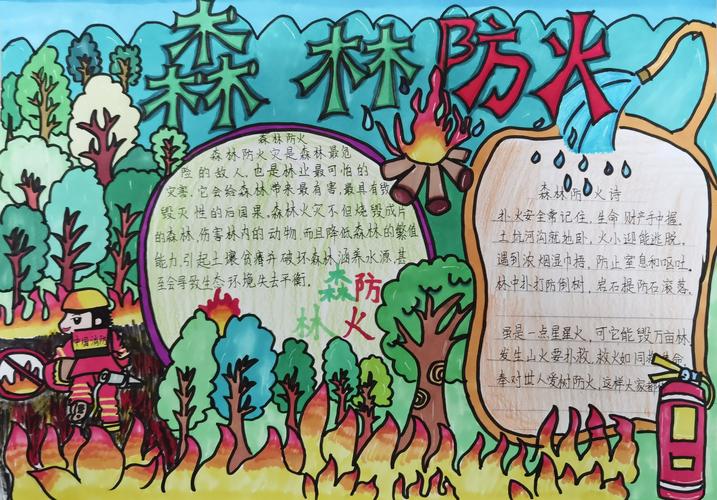 森林防火
森林防火
森林防火灾是森林最危
险的敌人,也是林业最可怕的
灾害,它会给森林带来最有害,最具有毁
毁灭性的后国果,森林火灾不但烧毁成片
的森林,伤害林内的动物,而且降低森林的繁殖
能力,引起土攘贫瘠并破坏森林涵养水源,甚
至会导致生态环境失去平衡。
森防
林火
中国消防
森林防火诗
扑火安全常记住,生命财产手中握。
土坑河沟就地卧,火小迎能逃脱。
遇到浓烟湿巾捂,防止窒息和呕吐。
林中扑打防倒树,岩石提防石滚落。
虽是一点星星火,可它能毁万亩林,
发生山火要扑救,救火如同救生命
奉对世人爱树防火,这样大家都